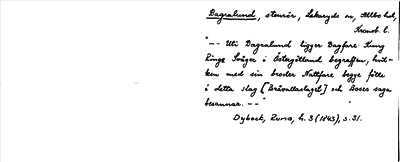 Dagralund, stenrör, Lekaryds sn, Allbo hd,
Kronob. l.
"-- Uti Dagralund ligger Dagfare Kung
Rings Svåger i Östergötland begraffen, hvil-
ken med sin broder Nattfare begge föllo
i detta slag [Bråvallaslaget] och Boses saga
besannar. --"
Dybeck, Runa, h. 3 (1843), s. 31.